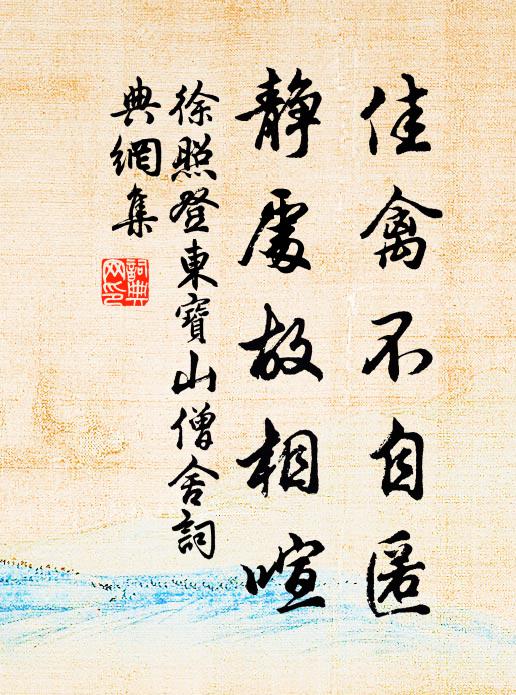 佳禽不自匿
靜處故相喧
徐照登東寶山僧舍詞
典網集
詞典
网印